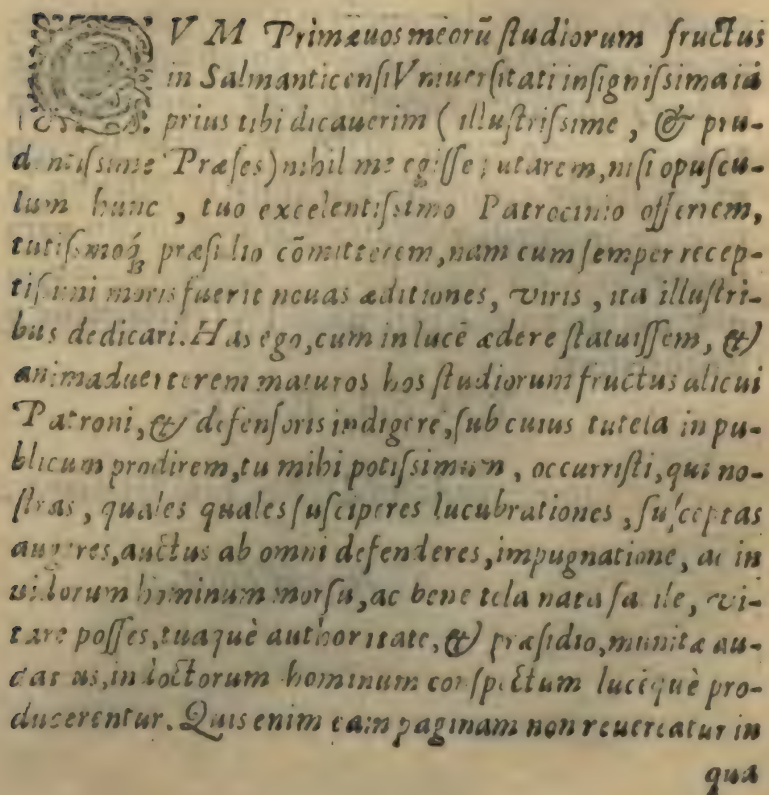 CVM Primæuos meorũ ſtudiorum fructus
in Salmanticenſi Vniuerſitati inſigniſsima iã
prius tibi dicauerim ( illuſtriſsime, & pru-
dentiſsime Præſes) nihil me egiſſe putarem, niſi opuſcu-
lum hunc, tuo excelentiſsimo Patrocinio offerrem,
tutiſsimoq́; præſidio cõmitterem, nam cum ſemper recep-
tiſsimi moris fuerit nouas æditiones, viris, ita illuſtri-
bus dedicari. Has ego, cum in lucẽ ædere ſtatuiſſem, &
animaduerterem maturos hos ſtudiorum fructus alicui
Patroni, & defenſoris indigere, ſub cuius tutela in pu-
blicum prodirem, tu mihi potiſsimum, occurriſti, qui no-
ſtras, quales quales ſuſciperes lucubrationes, ſuſceptas
augeres, auctus ab omni defenderes, impugnatione, ac in
uidorum hominum morſu, ac bene tela nata facile, vi-
tare poſſes, tuaquè authoritate, & præſidio, munitæ au-
dacius, in doctorum hominum conſpectum lucéquè pro-
ducerentur. Quis enim eam paginam non reuereatur in
qua